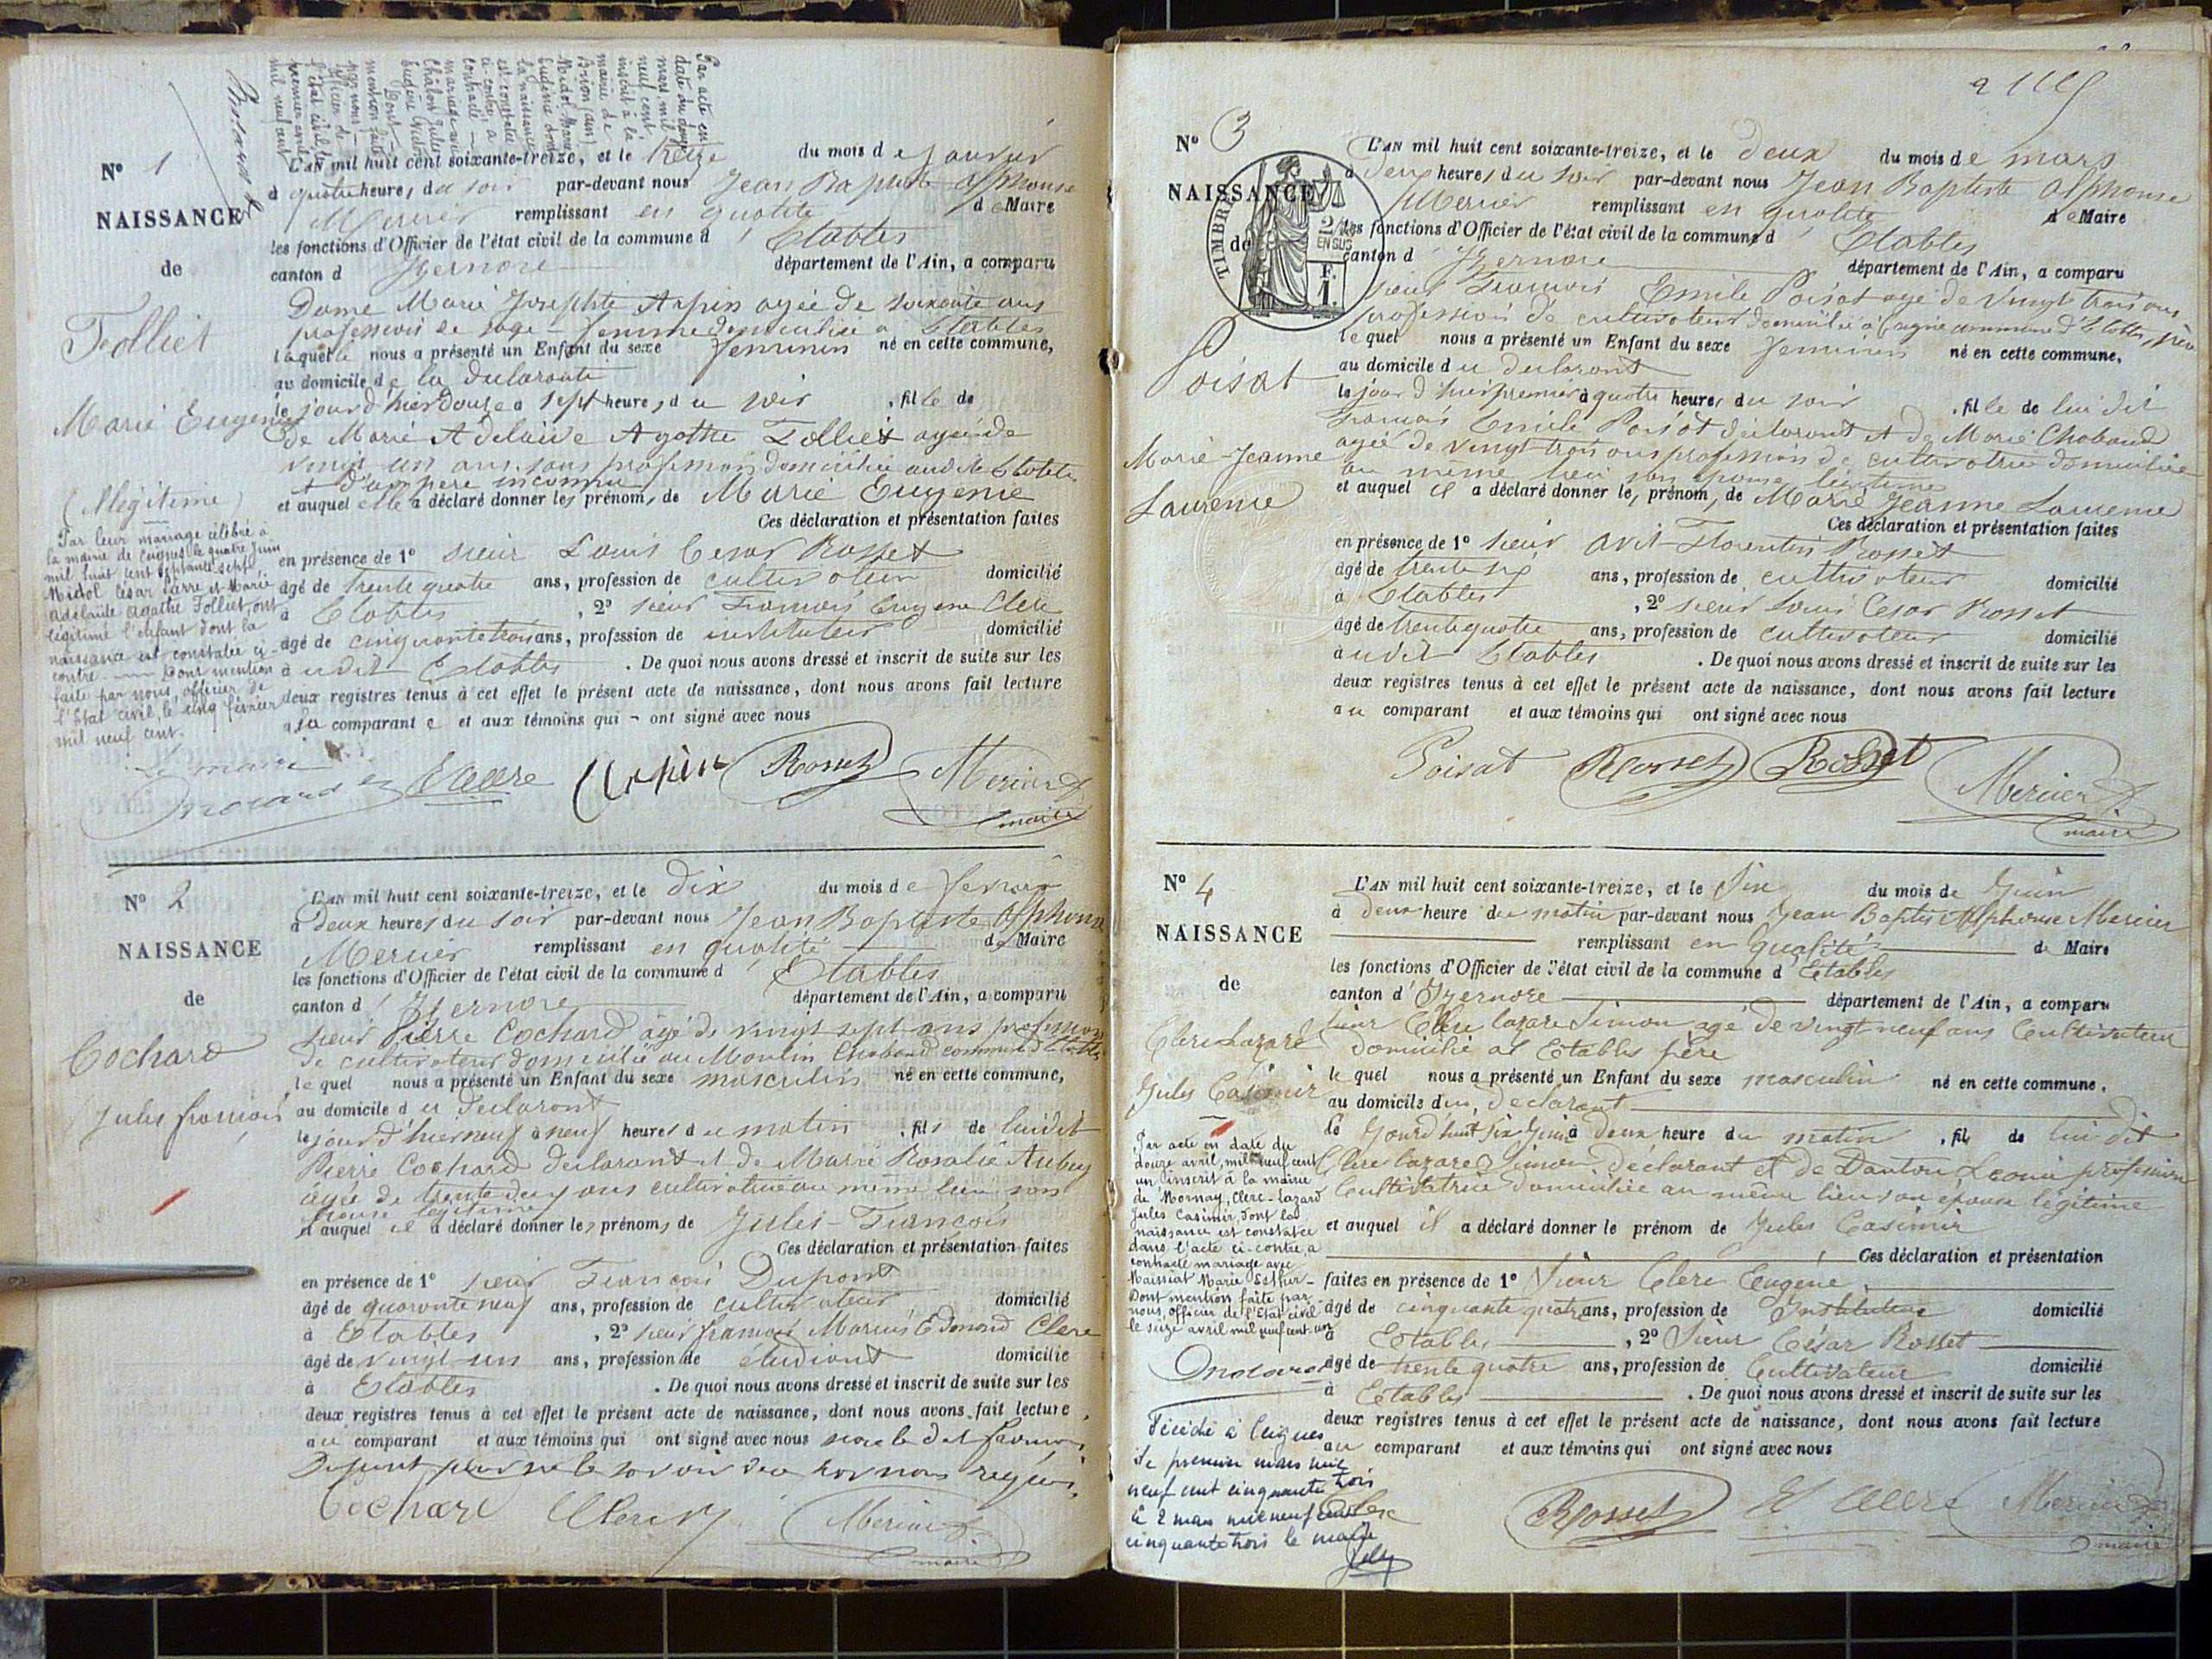 Par acte en
date du douze
mars mil
neuf cent,
inscrit à la
mairie de
Brion (Ain)
Midol Marie
Eugénie dont
la naissance
est constatée
ci-contre, a
contracté
mariage avec
Châlon Jules
Eugène
Dont
mention faite
par nous
officier de
l'état civil, le
premier avril
mil neuf cent
N° 1
NAISSANCE
de
Folliet
Marie Eugénie
(Illégitime)
Par leur mariage célébré à
la mairie de Ceignes le quatre Juin
mil huit cent septante-sept
Midol César Pierre et Marie
Adélaïde Agathe Folliet, ont
légitimé l'enfant dont la
naissance est constatée ci-
contre. Dont mention
faite par nous, officier de
l'Etat civil, le cinq février
mil neuf cent.
Le maire
L'AN mil huit cent soixante-treize, et le treize du mois de janvier
à quatre heures du soir par-devant nous Jean Baptiste Alphonse
Mercier remplissant en qualité de Maire
les fonctions d'Officier de l'état civil de la commune d'Etables
canton d'Izernore département de l'Ain, a comparu
Dame Marie Josephte Arpin agée de soixante ans
profession de sage-femme domiciliée à Etables
laquelle nous a présenté un Enfant du sexe feminin né en cette commune,
au domicile de la declarante
le jour d'hier douze à sept heures du soir, fille de
de Marie Adelaïde Agathe Folliet agée de
vingt un ans, sans profession domiciliée audit Etables
et d'un père inconnu
et auquel elle a déclaré donner les prénoms de Marie Eugenie
Ces déclaration et présentation faites
en présence de 1° sieur Louis Cesar Rosset
âgé de trente quatre ans, profession de cultivateur domicilié
à Etables, 2° sieur François Eugene Clerc
âgé de cinquante trois ans, profession de instituteur domicilié
à udit Etables. De quoi nous avons dressé et inscrit de suite sur les
deux registres tenus à cet effet le présent acte de naissance, dont nous avons fait lecture
a la comparante et aux témoins qui ont signé avec nous
E Clerc Arpin Rosset Mercier
maire
N° 2
NAISSANCE
de
Cochard
Jules françois
L'AN mil huit cent soixante-treize, et le dix du mois de fevrier
à deux heures du soir par-devant nous Jean Baptiste Alphonse
Mercier remplissant en qualité de Maire
les fonctions d'Officier de l'état civil de la commune d'Etables
canton d'Izernore département de l'Ain, a comparu
sieur Pierre Cochard âgé de vingt sept ans profession
de cultivateur domicilié au Moulin Chabaud commune d'Etables
lequel nous a présenté un Enfant du sexe masculin né en cette commune,
au domicile du declarant
le jour d'hier neuf à neuf heures du matin, fils de lui dit
Pierre Cochard declarant et de Marie Rosalie Aubry
âgée de trente deux ans cultivatrice au même lieu son
épouse legitime
et auquel il a déclaré donner les prénoms de Jules-François
Ces déclaration et présentation faites
en présence de 1° sieur François Dupont
âgé de quarante neuf ans, profession de cultivateur domicilié
à Etables, 2° sieur françois Marius Edmond Clerc
âgé de vingt-un ans, profession de étudiant domicilié
à Etables. De quoi nous avons dressé et inscrit de suite sur les
deux registres tenus à cet effet le présent acte de naissance, dont nous avons fait lecture
au comparant et aux témoins qui ont signé avec nous non le dit françois
Dupont pour ne le savoir de ce par nous requis.
Cochard Clerc Mercier
maire
N° 3
NAISSANCE
de
TIMBRE
2/10 EN SUS
F. 1.
Poisat
Marie-Jeanne
Laurence
L'AN mil huit cent soixante-treize, et le deux du mois de mars
à deux heures du soir par-devant nous Jean Baptiste Alphonse
Mercier remplissant en qualité de Maire
les fonctions d'Officier de l'état civil de la commune d'Etables
canton d'Izernore département de l'Ain, a comparu
sieur François Emile Poisat agé de vingt trois ans
profession de cultivateur domicilié à commune d'Etables, père
lequel nous a présenté un Enfant du sexe feminin né en cette commune,
au domicile du declarant
le jour d'hier premier à quatre heures du soir, fille de lui dit
François Emile Poisat declarant et de Marie Chabaud
agée de vingt-trois ans profession de cultivatrice domiciliée
au même lieu son épouse légitime
et auquel il a déclaré donner les prénoms de Marie Jeanne Laurence
Ces déclaration et présentation faites
en présence de 1° sieur Avit Florentin Rosset
âgé de trente six ans, profession de cultivateur domicilié
à Etables, 2° sieur Louis Cesar Rosset
âgé de trente quatre ans, profession de cultivateur domicilié
à udit Etables. De quoi nous avons dressé et inscrit de suite sur les
deux registres tenus à cet effet le présent acte de naissance, dont nous avons fait lecture
au comparant et aux témoins qui ont signé avec nous
Poisat Rosset Rosset Mercier
maire
N° 4
NAISSANCE
de
Clerc Lazare
Jules Casimir
Par acte en date du
douze avril, mil neuf cent
un inscrit à la mairie
de Mornay, Clerc-Lazard
Jules Casimir, dont la
naissance est constatée
dans l'acte ci-contre, a
contracté mariage avec
Maissiat Marie Esther-
Dont mention faite par
nous, officier de l'Etat civil
le seize avril mil neuf cent-un
Décédé à Ceignes
le premier mars mil
neuf cent cinquante trois
le 2 mars mil neuf cent
cinquante trois le maire
L'AN mil huit cent soixante-treize, et le Six du mois de Juin
à deux heure du matin par-devant nous Jean Baptis Alphonse Mercier
remplissant en qualité de Maire
les fonctions d'Officier de l'état civil de la commune d'Etables
canton d'Izernore département de l'Ain, a comparu
sieur Clerc lazare Simon agé de vingt neuf ans Cultivateur
domicilié at Etables père
lequel nous a présenté un Enfant du sexe masculin né en cette commune.
au domicile du declarant
le Jourd'huit six Juin à deux heure du matin, fils de lui dit
Clerc lazare Simon déclarant et de Danton Leonie profession
Cultivatrice domiciliée au même lieu son épouse légitime
et auquel il a déclaré donner le prénom de Jules Casimir
Ces déclaration et présentation
faites en présence de 1° Sieur Clerc Eugène
âgé de cinquante quatre ans, profession de Instituteur domicilié
à Etables, 2° Sieur César Rosset
âgé de trente quatre ans, profession de Cultivateur domicilié
à Etables. De quoi nous avons dressé et inscrit de suite sur les
deux registres tenus à cet effet le présent acte de naissance, dont nous avons fait lecture
au comparant et aux témoins qui ont signé avec nous
Rosset E Clerc Mercier
maire